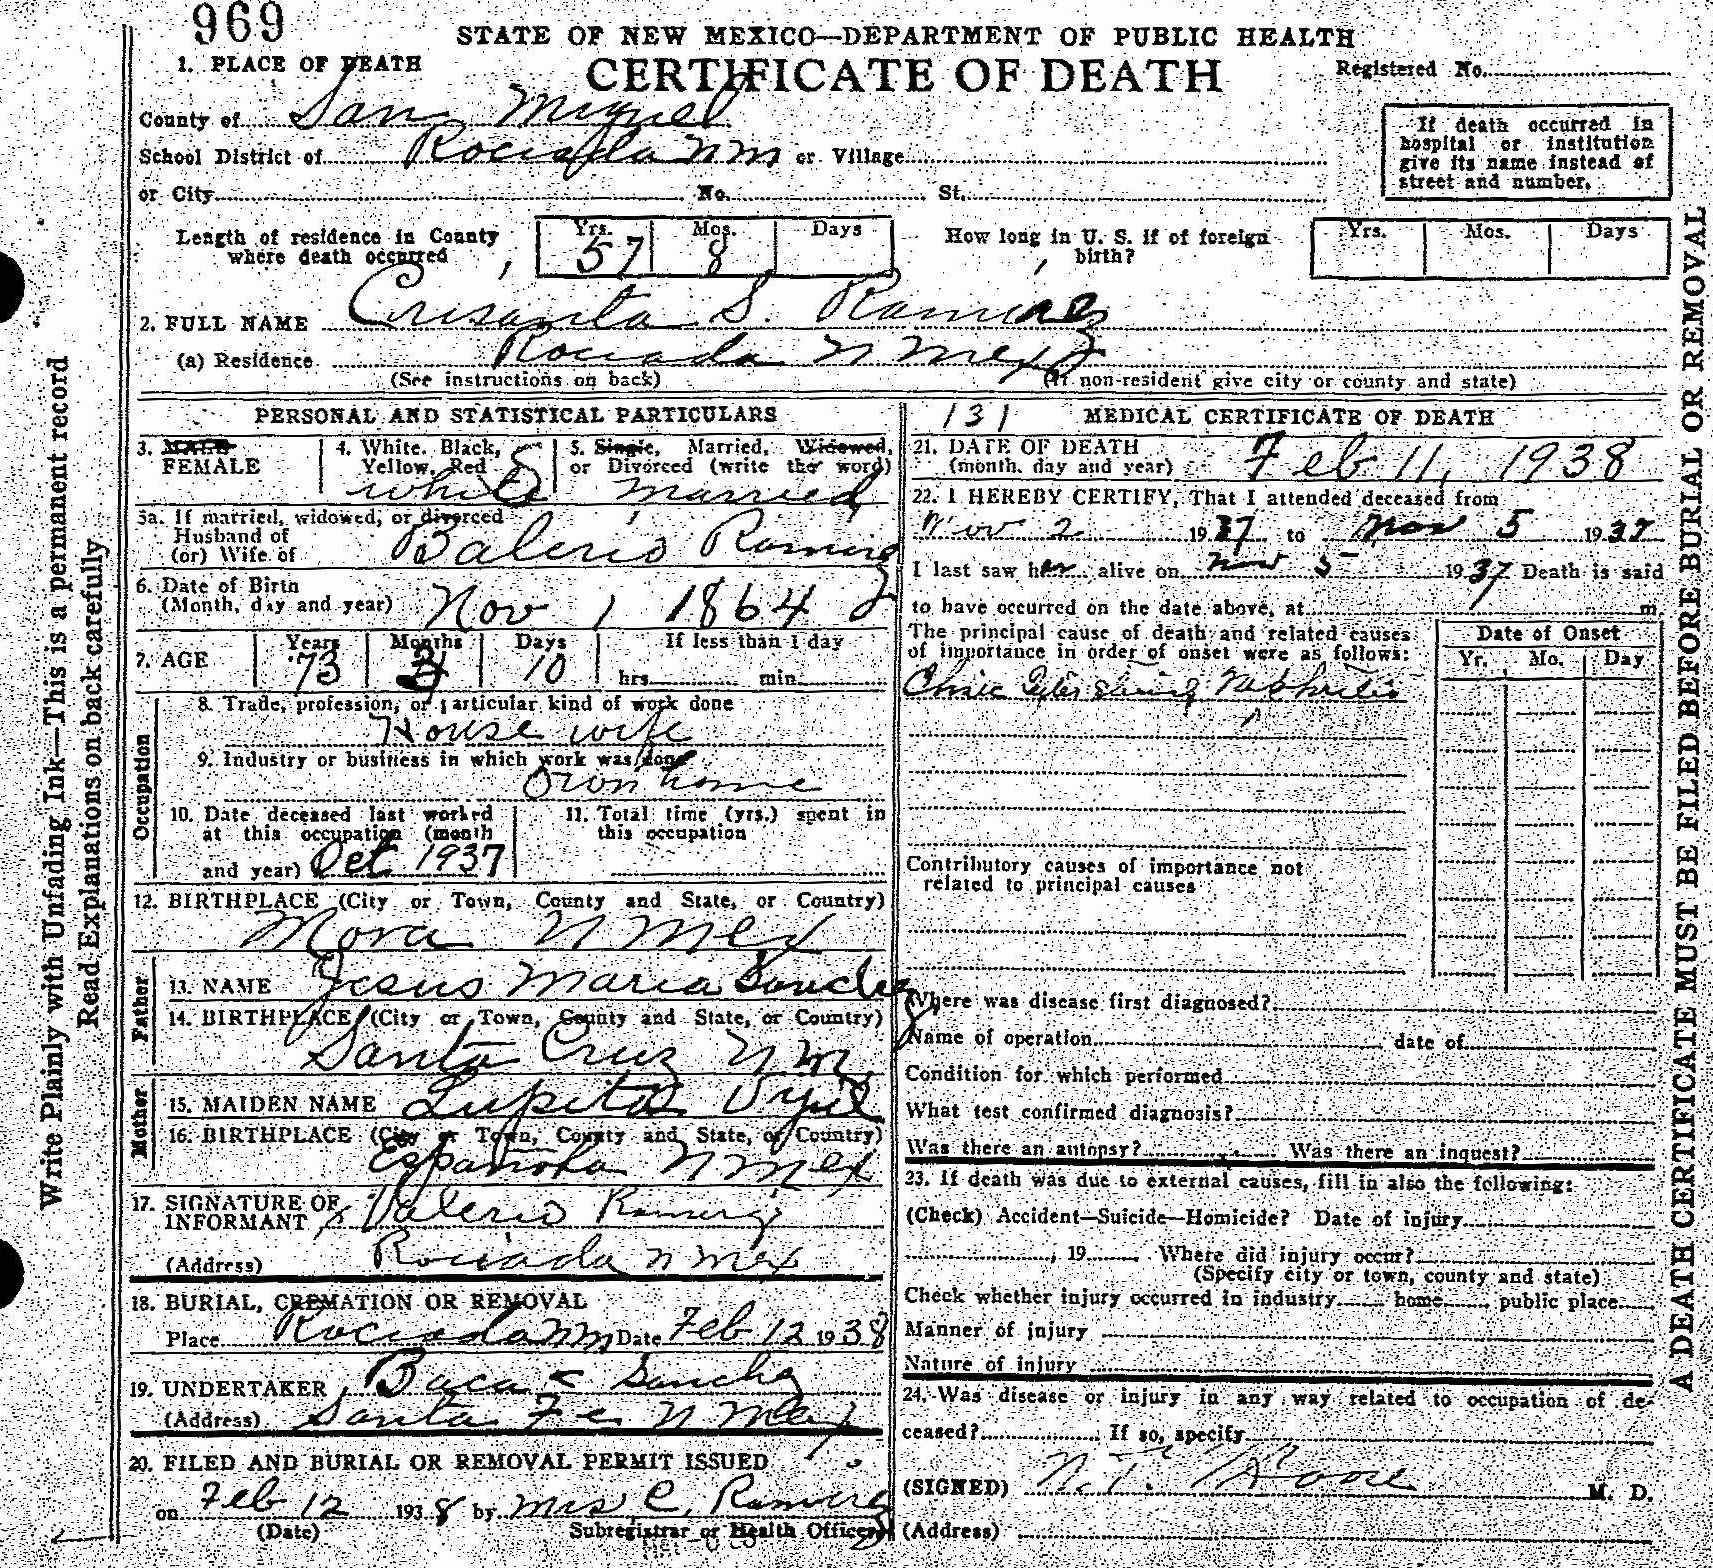 969
STATE OF NEW MEXICO—DEPARTMENT OF PUBLIC HEALTH
1. PLACE OF DEATH
CERTIFICATE OF DEATH
Registered No.
County of San Miguel
School District of Rociada N M or Village
or City No. St.
If death occurred in
hospital or institution
give its name instead of
street and number.
Length of residence in County
where death occurred
Yrs. Mos. Days
57 8
How long in U. S. if of foreign
birth?
Yrs. Mos. Days
2. FULL NAME Crisanta S. Ramirez
(a) Residence Rociada N Mex
(See instructions on back) (If non-resident give city or county and state)
PERSONAL AND STATISTICAL PARTICULARS
3. MALE
FEMALE
4. White, Black,
Yellow, Red
white
5. Single, Married, Widowed,
or Divorced (write the word)
married
5a. If married, widowed, or divorced
Husband of
(or) Wife of Balerio Ramirez
6. Date of Birth
(Month, day and year) Nov 1 1864
7. AGE
Years Months Days If less than 1 day
73 3 10 hrs. min.
Occupation
8. Trade, profession, or particular kind of work done
House wife
9. Industry or business in which work was done
Own home
10. Date deceased last worked
at this occupation (month
and year) Oct 1937
11. Total time (yrs.) spent in
this occupation
12. BIRTHPLACE (City or Town, County and State, or Country)
Mora N Mex
Father
13. NAME Jesus Maria Sanchez
14. BIRTHPLACE (City or Town, County and State, or Country)
Santa Cruz N M
Mother
15. MAIDEN NAME Lupita Vigil
16. BIRTHPLACE (City or Town, County and State, or Country)
Española N Mex
17. SIGNATURE OF
INFORMANT x Valerio Ramirez
(Address) Rociada N Mex
18. BURIAL, CREMATION OR REMOVAL
Place Rociada NM Date Feb 12 1938
19. UNDERTAKER Baca & Sanchez
(Address) Santa Fe N Mex
20. FILED AND BURIAL OR REMOVAL PERMIT ISSUED
on Feb 12 1938 by Mrs C. Ramirez
(Date) Subregistrar or Health Officer
131 MEDICAL CERTIFICATE OF DEATH
21. DATE OF DEATH
(month, day and year) Feb 11, 1938
22. I HEREBY CERTIFY, That I attended deceased from
Nov 2 1937 to Nov 5 1937
I last saw her alive on Nov 5 1937 Death is said
to have occurred on the date above, at m
The principal cause of death and related causes
of importance in order of onset were as follows:
Nephritis
Date of Onset
Yr. Mo. Day
Contributory causes of importance not
related to principal causes
Where was disease first diagnosed?
Name of operation date of
Condition for which performed
What test confirmed diagnosis?
Was there an autopsy? Was there an inquest?
23. If death was due to external causes, fill in also the following:
(Check) Accident—Suicide—Homicide? Date of injury
, 19 Where did injury occur?
(Specify city or town, county and state)
Check whether injury occurred in industry home public place
Manner of injury
Nature of injury
24. Was disease or injury in any way related to occupation of de-
ceased? If so, specify
(SIGNED) M. D.
(Address)
Write Plainly with Unfading Ink—This is a permanent record
Read Explanations on back carefully
A DEATH CERTIFICATE MUST BE FILED BEFORE BURIAL OR REMOVAL